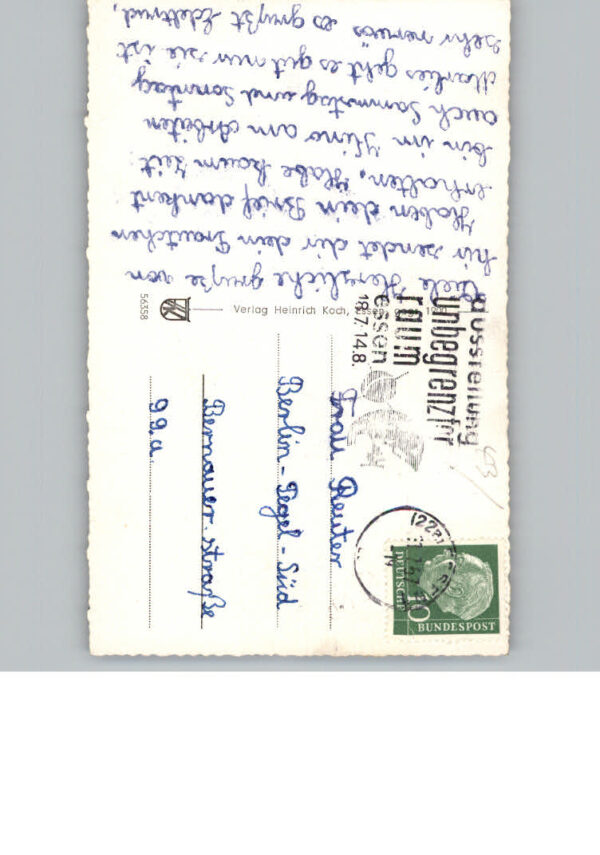 Viele Herzliche grüße von
hir sendet dir dein Trautchen
Haben dein Brief dankent
erhalten. Habe kaum Zeit
bin im Kino am Arbeiten
auch Sammstag und Sonntag
Marlies geht es gut nur sie ist
sehr nerwös es grüßt Edeltrud,
56358
Verlag Heinrich Koch, Essen
ausstellung
unbegrenzter
raum
essen
18.7.14.8.
Frau Reuter
Berlin-Tegel-Süd
Bernauer. straße
99.a
10
DEUTSCHE
BUNDESPOST